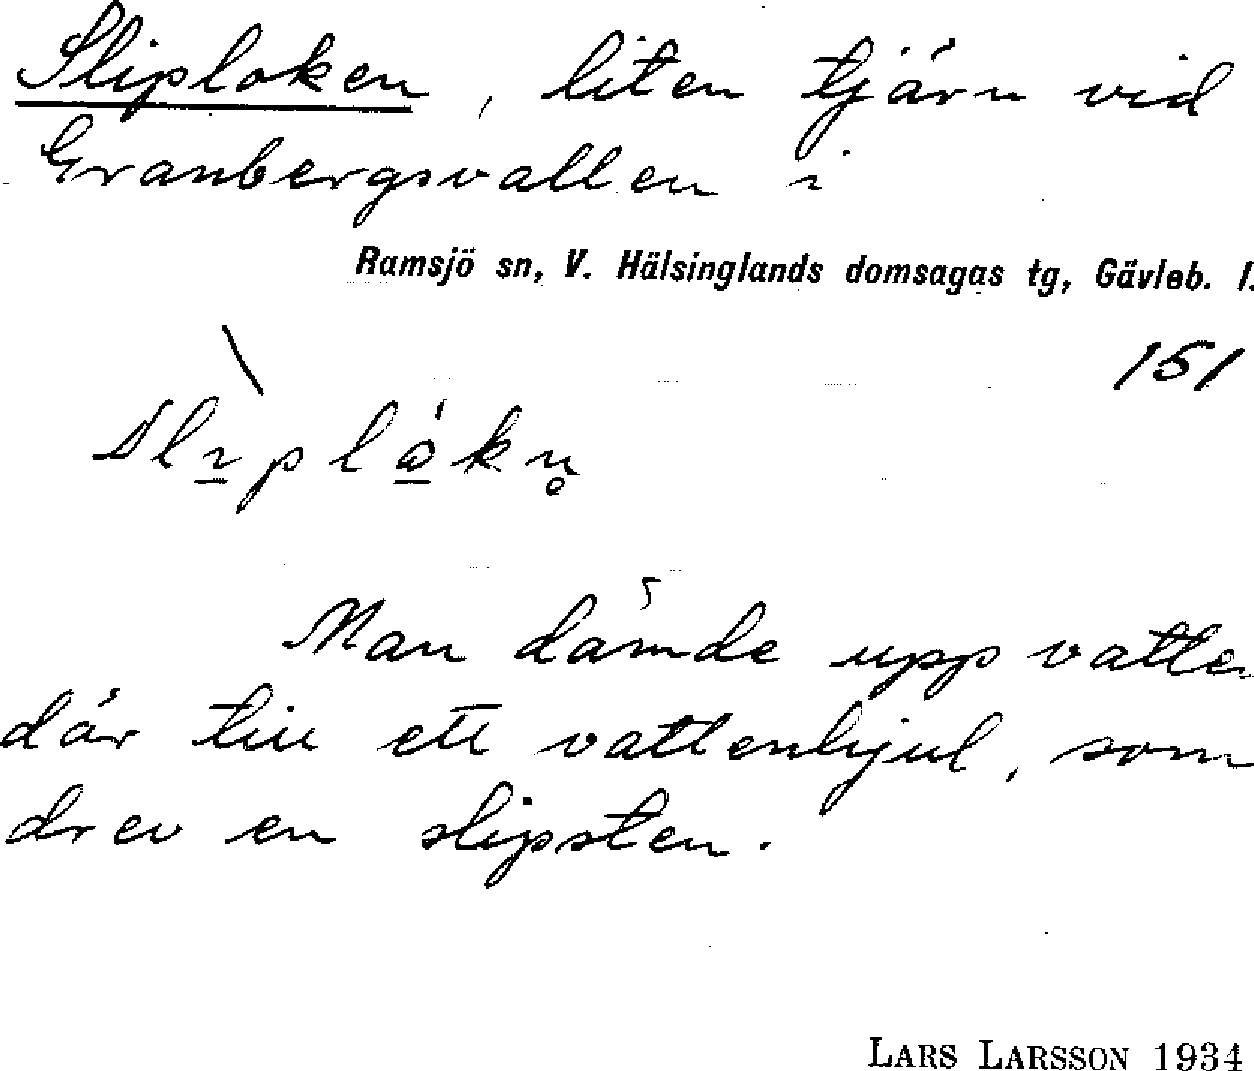 Sliploken, liten tjärn vid
Granbergsvallen i
Ramsjö sn, V. Hälsinglands domsagas tg, Gävleb. l.
151
Man dämde upp vatte
där till ett vattenhjul, som
drev en slipsten.
LARS LARSSON 1934